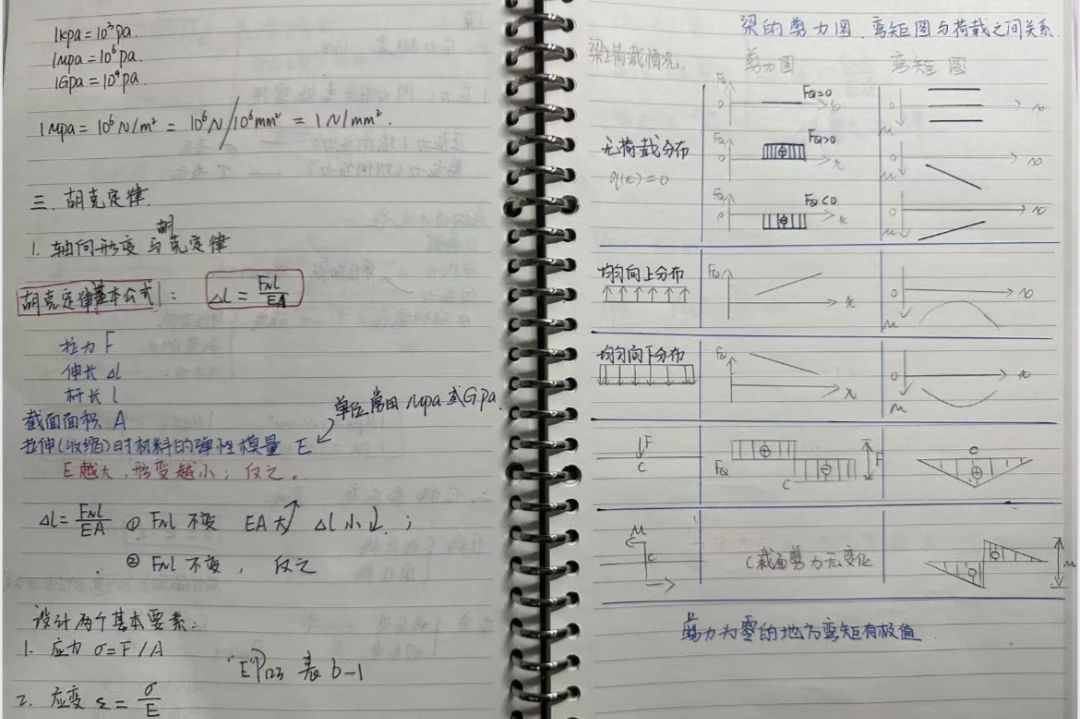 1kpa = 10³pa.
1Mpa = 10⁶pa.
1Gpa = 10⁹pa.
1Mpa = 10⁶N/m² = 10⁶N/10⁶mm² = 1N/mm².
三. 胡克定律
1. 轴向形变与胡克定律
胡克定律基本公式: Δl = FNl/EA
拉力 F
伸长 Δl
杆长 l
截面面积 A
单位常用 Mpa 或 Gpa.
拉伸(收缩)时材料的弹性模量 E
E越大,形变越小;反之。
Δl = FNl/EA ① FNl 不变 EA大↗ Δl 小↓;
② FNl 不变, 反之
设计两个基本要素:
1. 应力 σ=F/A
"E"P123 表 6-1
2. 应变 ε = σ/E
梁的剪力图、弯矩图与荷载之间关系.
梁上荷载情况 剪力图 弯矩图
无荷载分布
q(x)=0
FQ FQ=0
0 x
0 x
M
FQ FQ>0
0 x
0 x
M
FQ FQ<0
0 x
0 x
M
均匀向上分布
FQ
x
0 x
M
均匀向下分布
FQ
x
0 x
M
F
C
FQ ⊕ ⊕ F
C
C
⊕
M
C
C截面剪力无变化
M
剪力为零的地方弯矩有极值